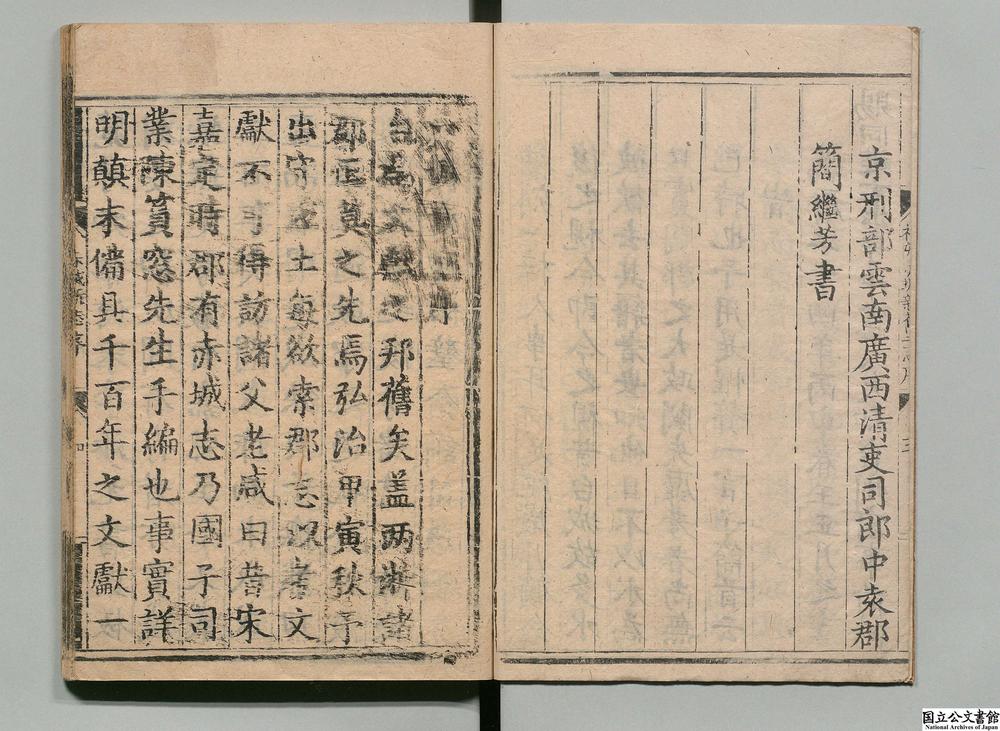 京刑部雲南廣西清吏司郎中袁郡
簡繼芳書
序
台為文獻之邦舊矣盖两淛諸
郡臣莫之先焉弘治甲寅秋予
出守茲土每欲索郡志以考文
獻不可得訪諸父老咸曰昔宋
嘉定時郡有赤城志乃國子司
業陳篔窓先生手編也事實詳
明顛末備具千百年之文獻一
国立公文書館
National Archives of Japan